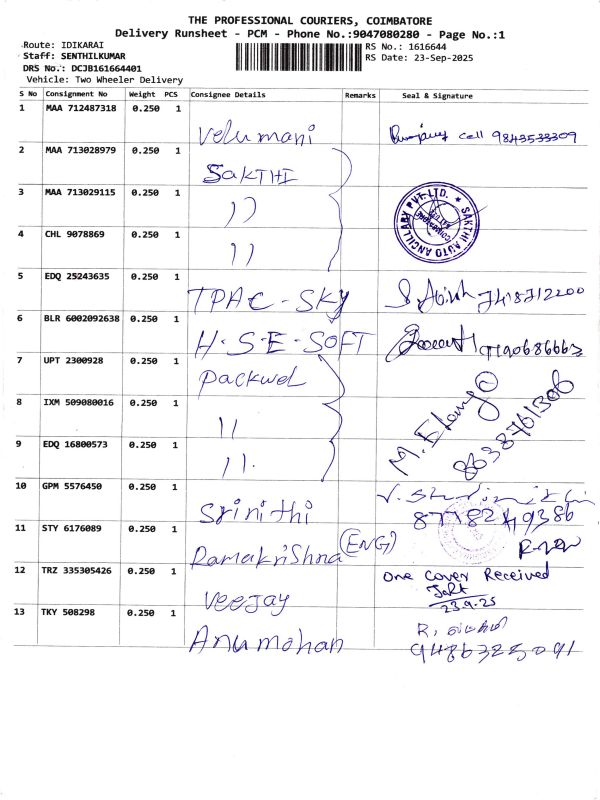 THE PROFESSIONAL COURIERS, COIMBATORE
Delivery Runsheet - PCM - Phone No.:9047080280 - Page No.:1
Route: IDIKARAI
RS No.: 1616644
Staff: SENTHILKUMAR
RS Date: 23-Sep-2025
DRS No.: DCJB161664401
Vehicle: Two Wheeler Delivery
S No Consignment No Weight PCS Consignee Details Remarks Seal & Signature
1 MAA 712487318 0.250 1 Velumani cell 9843533309
2 MAA 713028979 0.250 1 SAKTHI
3 MAA 713029115 0.250 1 ))
SAKTHI AUTO ANCILLARY PVT. LTD.
COIMBATORE
4 CHL 9078869 0.250 1 ))
5 EDQ 25243635 0.250 1 TPAC-SKY 7418712200
6 BLR 6002092638 0.250 1 H-S-E-SOFT
7 UPT 2300928 0.250 1 Packwel
8 IXM 509080016 0.250 1 ))
M. Elango
8638761306
9 EDQ 16800573 0.250 1 )).
10 GPM 5576450 0.250 1 Srinithi
11 STY 6176089 0.250 1 Ramakrishna (ENG)
12 TRZ 335305426 0.250 1 Veejay One Cover Received
23.9.25
13 TKY 508298 0.250 1 Anumohan R,
9486325091